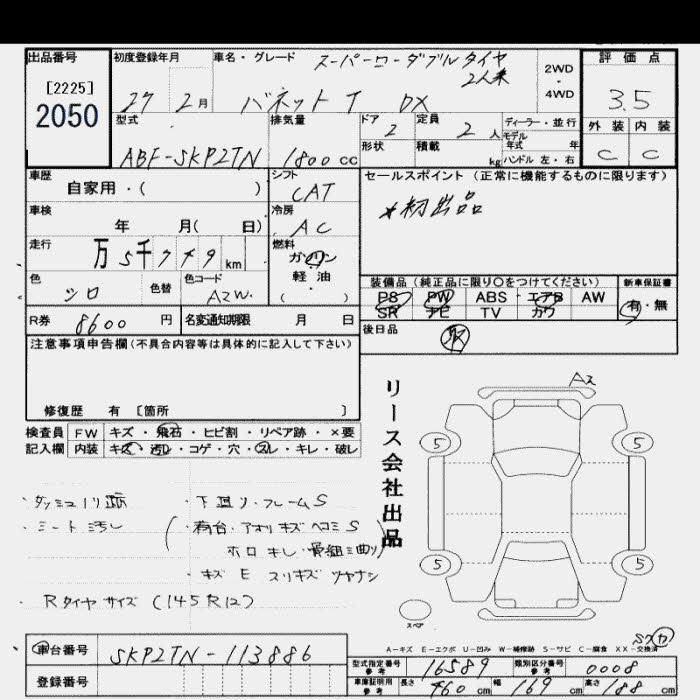 出品番号 初度登録年月 車名・グレード スーパーローダブルタイヤ 2WD 評価点
[2225] 2人乗 ・
2050 27 2月 バネットT DX 4WD 3.5
型式 排気量 ドア 2 定員 2 人 ディーラー・並行 外装 内装
モデル年式 年
ABF-SKP2TN 1800 cc 形状 積載 kg ハンドル 左・右 C C
車歴 シフト セールスポイント (正常に機能するものに限ります)
自家用・( ) CAT *初出品
車検 冷房
年 月( 日) AC
走行 燃料
万5千749km ガソリン
軽油
色 色替 色コード ( ) 装備品 (純正品に限り○をつけてください) 新車保証書
シロ AZW. PS PW ABS エアB AW 有・無
SR ナビ TV カワ
R券 8600 円 名変通知期限 月 日 後日品 取
注意事項申告欄(不具合内容等は具体的に記入して下さい)
修復歴 有 〔箇所 〕
リース会社出品
検査員 FW キズ・飛石・ヒビ割・リペア跡・×要
記入欄 内装 キズ・汚レ・コゲ・穴・スレ・キレ・破レ
A2
5 5
・シート汚レ
・下廻リ・フレームS
・荷台・アオリキズヘコミS
ホロキレ・骨組ミ曲り
・キズEスリキズツヤナシ
5 5
・Rタイヤサイズ(145R12)
スペア
A-キズ E-エクボ U-凹み W-補修跡 S-サビ C-腐食 XX-交換済
車台番号 SKP2TN-113886
登録番号
型式指定番号 参考 16589 類別区分番号 参考 0008
車庫証明用 参考 長さ 460 cm 幅 169 cm 高さ 188 cm